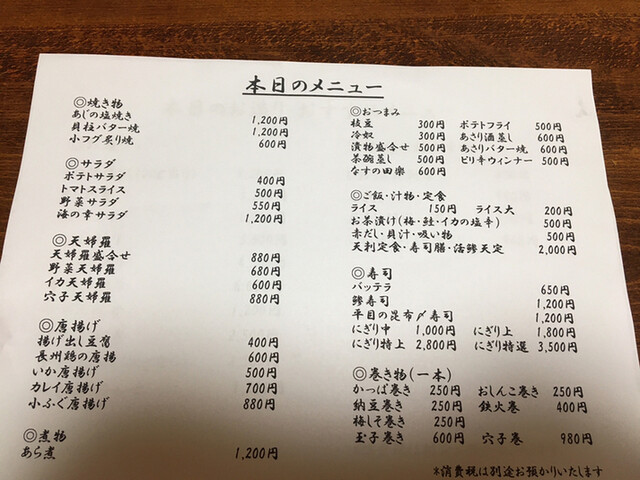 本日のメニュー
◎焼き物
あじの塩焼き 1,200円
貝柱バター焼 1,200円
小フグ炙り焼 600円
◎サラダ
ポテトサラダ 400円
トマトスライス 500円
野菜サラダ 550円
海の幸サラダ 1,200円
◎天婦羅
天婦羅盛合せ 880円
野菜天婦羅 680円
イカ天婦羅 600円
穴子天婦羅 880円
◎唐揚げ
揚げ出し豆腐 400円
長州鶏の唐揚 600円
いか唐揚げ 500円
カレイ唐揚げ 700円
小ふぐ唐揚げ 880円
◎煮物
あら煮 1,200円
◎おつまみ
枝豆 300円 ポテトフライ 500円
冷奴 300円 あさり酒蒸し 600円
漬物盛合せ 500円 あさりバター焼 600円
茶碗蒸し 500円 ピリ辛ウィンナー 500円
なすの田楽 600円
◎ご飯・汁物・定食
ライス 150円 ライス大 200円
お茶漬け(梅・鮭・イカの塩辛) 500円
赤だし・貝汁・吸い物 500円
天刺定食・寿司膳・活鯵天定 2,000円
◎寿司
バッテラ 650円
鯵寿司 1,200円
平目の昆布〆寿司 1,200円
にぎり中 1,000円 にぎり上 1,800円
にぎり特上 2,800円 にぎり特選 3,500円
◎巻き物(一本)
かっぱ巻き 250円 おしんこ巻き 250円
納豆巻き 250円 鉄火巻 400円
梅しそ巻き 250円
玉子巻き 600円 穴子巻 980円
*消費税は別途お預かりいたします